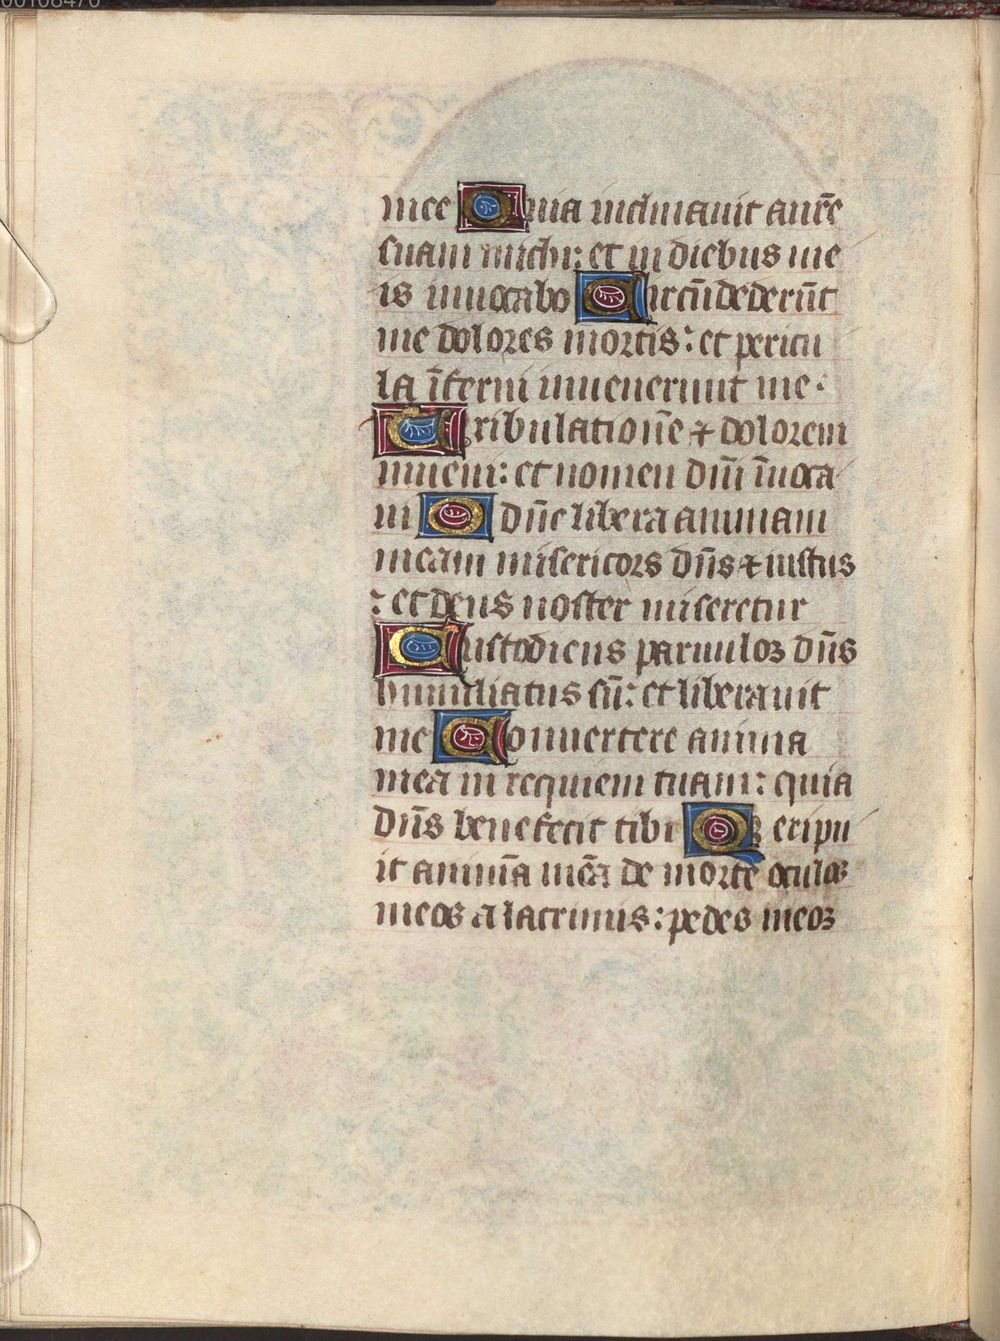 mee Quia inclinauit aurē
suam michi: et in diebus me
is inuocabo Circūdederūt
me dolores mortis: et pericu
la īferni inuenerunt me.
Tribulationē ⁊ dolorem
inueni: et nomen dn̄i īuoca
ui O dn̄e libera animam
meam misericors dn̄s ⁊ iustus
: et deus noster miseretur
Custodiens paruuloꝝ dn̄s
humiliatus sū: et liberauit
me Conuertere anima
mea in requiem tuam: quia
dn̄s benefecit tibi Q eripu
it animā meā de morte oculos
meos a lacrimis: pedes meos